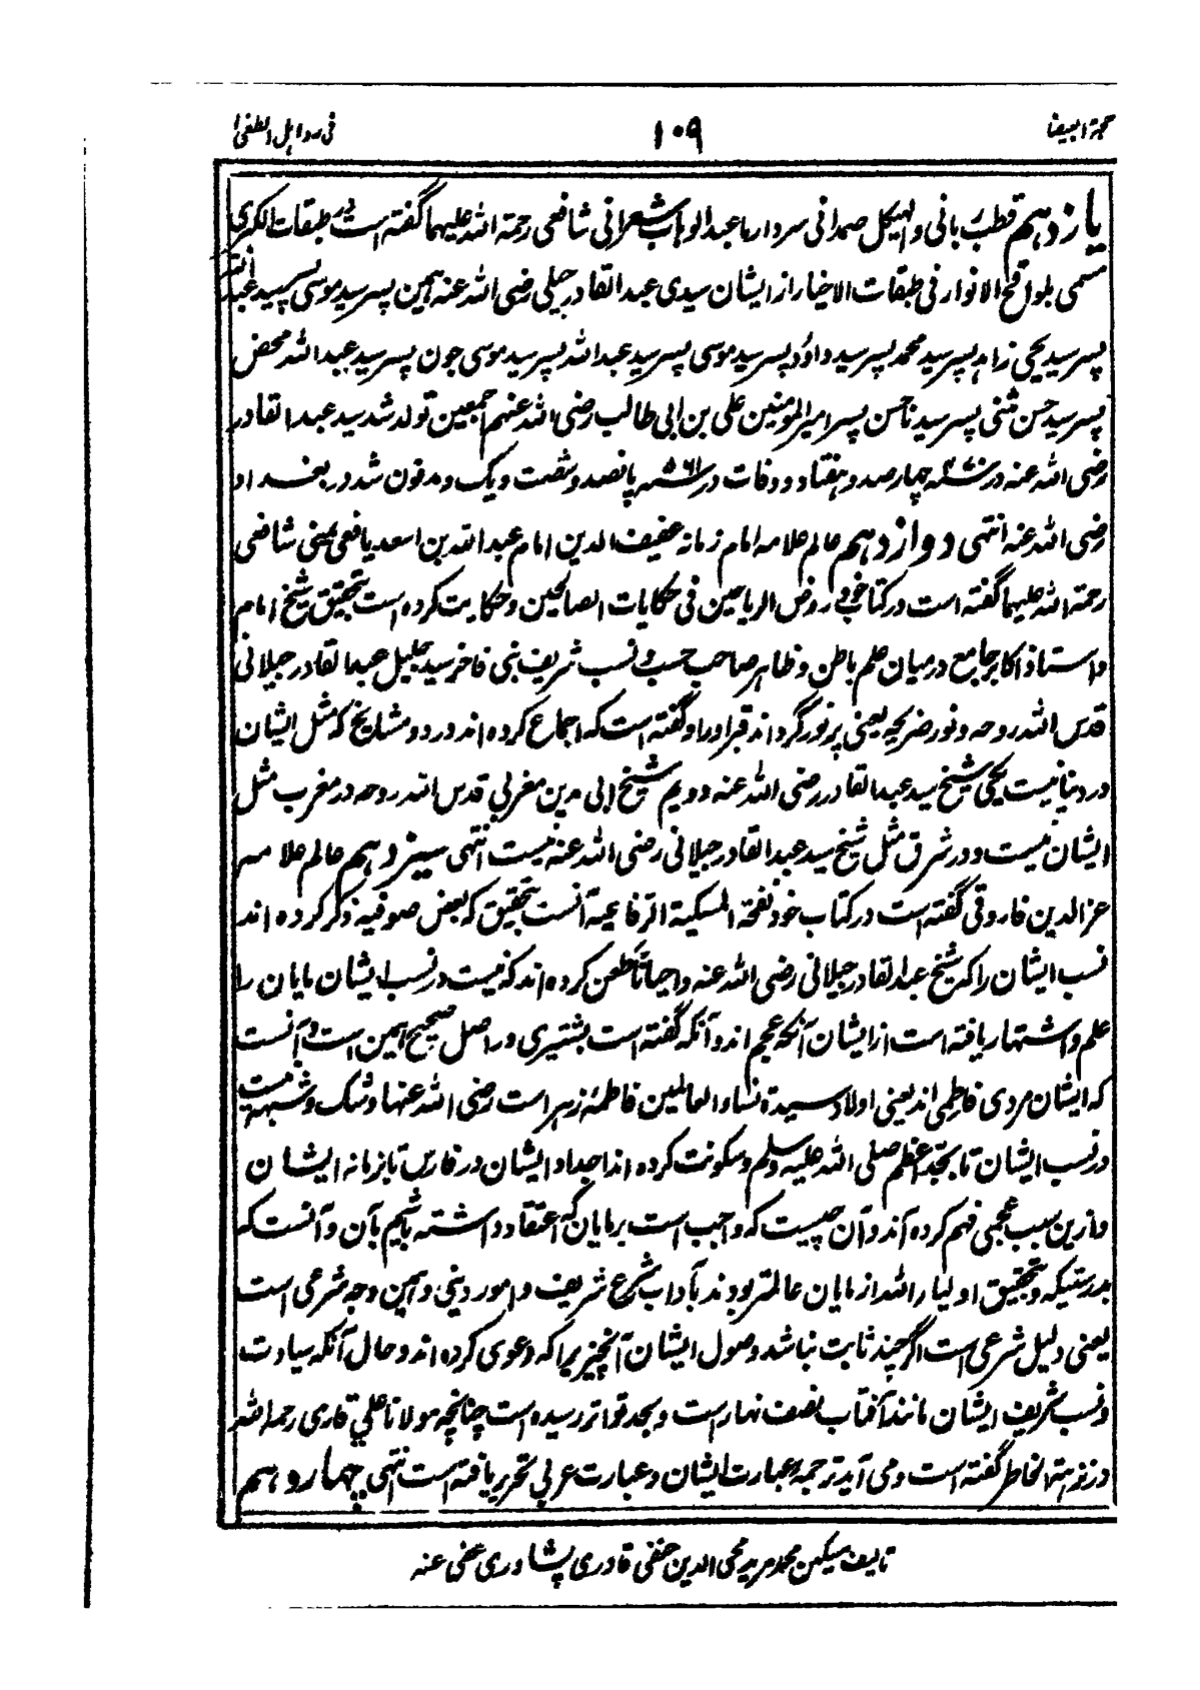 حجة البیضا ۱۰۹ فی رد اہل الطغی
یازدہم قطب ربانی و الہیکل صمدانی سردار ما عبدالوہاب شعرانی شافعی رحمة اللہ علیہما گفته است در طبقات الکبری
مسمی بلواقح الانوار فی طبقات الاخیار از ایشان سیدی عبد القادر جیلی رضی اللہ عنہ ہمین پسر سید موسی پسر سید عبد اللہ
پسر سید یحیی زاہد پسر سید محمد پسر سید داؤد پسر سید موسی پسر سید عبد اللہ پسر سید موسی جون پسر سید عبد اللہ محض
پسر سید حسن مثنی پسر سیدنا حسن پسر امیر المومنین علی بن ابی طالب رضی اللہ عنہم اجمعین تولد شد سید عبد القادر
رضی اللہ عنہ در ۴۷۰ سنہ چہار صد و ہفتاد و وفات در ۵۶۱ سنہ پانصد و شصت و یک و مدفون شد در بغداد
رضی اللہ عنہ انتہی دوازدہم عالم علامہ امام زمانہ عفیف الدین امام عبد اللہ بن اسعد یافعی یمنی شافعی
رحمة اللہ علیہما گفته است در کتاب خود روض الریاحین فی حکایات الصالحین و حکایت کرده است بتحقیق شیخ امام
و استاذ اکابر جامع درمیان علم باطن و ظاہر صاحب حسب و نسب شریف بنی فاخر سید جلیل عبد القادر جیلانی
قدس اللہ روحہ و نور ضریحہ یعنی پرنور گرداند قبر اورا و گفته است کہ اجماع کرده اند در دو مشایخ کہ مثل ایشان
در دنیا نیست یکی شیخ سید عبد القادر رضی اللہ عنہ دویم شیخ ابی مدین مغربی قدس اللہ روحہ در مغرب مثل
ایشان نیست و در شرق مثل شیخ سید عبد القادر جیلانی رضی اللہ عنہ نیست انتہی سیزدہم عالم علامہ
عز الدین فاروقی گفته است در کتاب خود نفحة المسکیة الرفاعیة آنست بتحقیق کہ بعض صوفیہ ذکر کرده اند
نسب ایشان را کہ شیخ عبد القادر جیلانی رضی اللہ عنہ و احیاناً طعن کرده اند کہ نیست در نسب ایشان مایان را
علم و اشتہار یافته است از ایشان آنکہ عجم اند و آنکہ گفته است بشتیری در اصل صحیح ہمین است و آنست
کہ ایشان مردی فاطمی اند یعنی اولاد سیدة نساء العالمین فاطمہ زہرا است رضی اللہ عنہا و شک و شبہہ نیست
در نسب ایشان تا بجد اعظم صلی اللہ علیہ وسلم و سکونت کرده اند اجداد ایشان در فارس تا زمانہ ایشان
و ازین سبب عجمی فہم کرده اند و آن چیست کہ واجب است بر مایان کہ اعتقاد داشته باشیم بآن و آنست کہ
بدرستیکہ و بتحقیق اولیاء اللہ از مایان عالمتر بودند بآداب شرع شریف و امور دینی و ہمین وجہ شرعی است
یعنی دلیل شرعی است اگرچند ثابت نباشد وصول ایشان آنچیزیرا کہ دعوی کرده اند و حال آنکہ سیادت
و نسب شریف ایشان مانند آفتاب نصف نہار است و بحد تواتر رسیده است چنانچہ مولانا علی قاری رحمہ اللہ
در نزہتہ الخاطر گفته است و می آید ترجمہ عبارت ایشان و عبارت عربی تحریر یافته است انتہی چہاردہم
تالیف مسکین محمد مرید محی الدین حنفی قادری پشاوری عفی عنہ